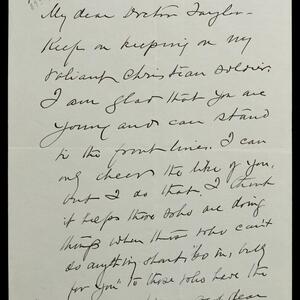 My dear Doctor Taylor-
Keep on keeping on my
valiant Christian soldier.
I am glad that you are
young and can stand
to the front lines. I can
only cheer the like of you,
but I do that. I think
it helps those who are doing
things when those who can't
do anything shout "So on, only
for you" to those who have the
dear